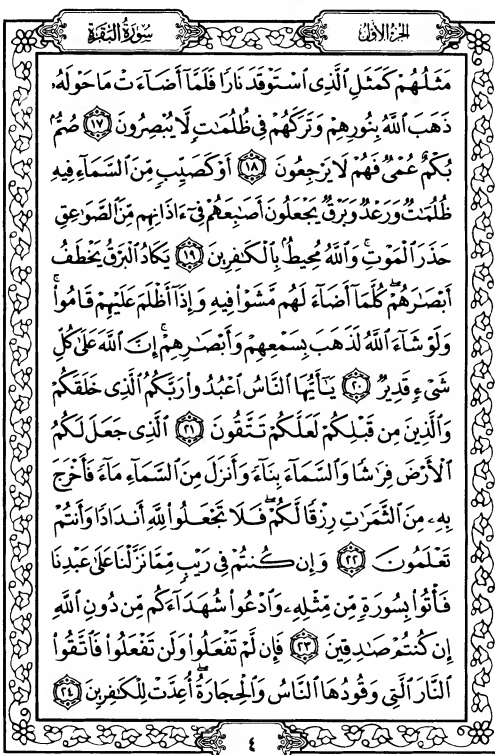 سُورَةُ البَقَرَةِ
الجُزْءُ الأَوَّلُ
مَثَلُهُمْ كَمَثَلِ ٱلَّذِى ٱسْتَوْقَدَ نَارًا فَلَمَّآ أَضَآءَتْ مَا حَوْلَهُۥ
ذَهَبَ ٱللَّهُ بِنُورِهِمْ وَتَرَكَهُمْ فِى ظُلُمَٰتٍ لَّا يُبْصِرُونَ ١٧ صُمٌّۢ
بُكْمٌ عُمْىٌ فَهُمْ لَا يَرْجِعُونَ ١٨ أَوْ كَصَيِّبٍ مِّنَ ٱلسَّمَآءِ فِيهِ
ظُلُمَٰتٌ وَرَعْدٌ وَبَرْقٌ يَجْعَلُونَ أَصَٰبِعَهُمْ فِىٓ ءَاذَانِهِم مِّنَ ٱلصَّوَٰعِقِ
حَذَرَ ٱلْمَوْتِ ۚ وَٱللَّهُ مُحِيطٌۢ بِٱلْكَٰفِرِينَ ١٩ يَكَادُ ٱلْبَرْقُ يَخْطَفُ
أَبْصَٰرَهُمْ ۖ كُلَّمَآ أَضَآءَ لَهُم مَّشَوْا۟ فِيهِ وَإِذَآ أَظْلَمَ عَلَيْهِمْ قَامُوا۟ ۚ
وَلَوْ شَآءَ ٱللَّهُ لَذَهَبَ بِسَمْعِهِمْ وَأَبْصَٰرِهِمْ ۚ إِنَّ ٱللَّهَ عَلَىٰ كُلِّ
شَىْءٍ قَدِيرٌ ٢٠ يَٰٓأَيُّهَا ٱلنَّاسُ ٱعْبُدُوا۟ رَبَّكُمُ ٱلَّذِى خَلَقَكُمْ
وَٱلَّذِينَ مِن قَبْلِكُمْ لَعَلَّكُمْ تَتَّقُونَ ٢١ ٱلَّذِى جَعَلَ لَكُمُ
ٱلْأَرْضَ فِرَٰشًا وَٱلسَّمَآءَ بِنَآءً وَأَنزَلَ مِنَ ٱلسَّمَآءِ مَآءً فَأَخْرَجَ
بِهِۦ مِنَ ٱلثَّمَرَٰتِ رِزْقًا لَّكُمْ ۖ فَلَا تَجْعَلُوا۟ لِلَّهِ أَندَادًا وَأَنتُمْ
تَعْلَمُونَ ٢٢ وَإِن كُنتُمْ فِى رَيْبٍ مِّمَّا نَزَّلْنَا عَلَىٰ عَبْدِنَا
فَأْتُوا۟ بِسُورَةٍ مِّن مِّثْلِهِۦ وَٱدْعُوا۟ شُهَدَآءَكُم مِّن دُونِ ٱللَّهِ
إِن كُنتُمْ صَٰدِقِينَ ٢٣ فَإِن لَّمْ تَفْعَلُوا۟ وَلَن تَفْعَلُوا۟ فَٱتَّقُوا۟
ٱلنَّارَ ٱلَّتِى وَقُودُهَا ٱلنَّاسُ وَٱلْحِجَارَةُ ۖ أُعِدَّتْ لِلْكَٰفِرِينَ ٢٤
٤